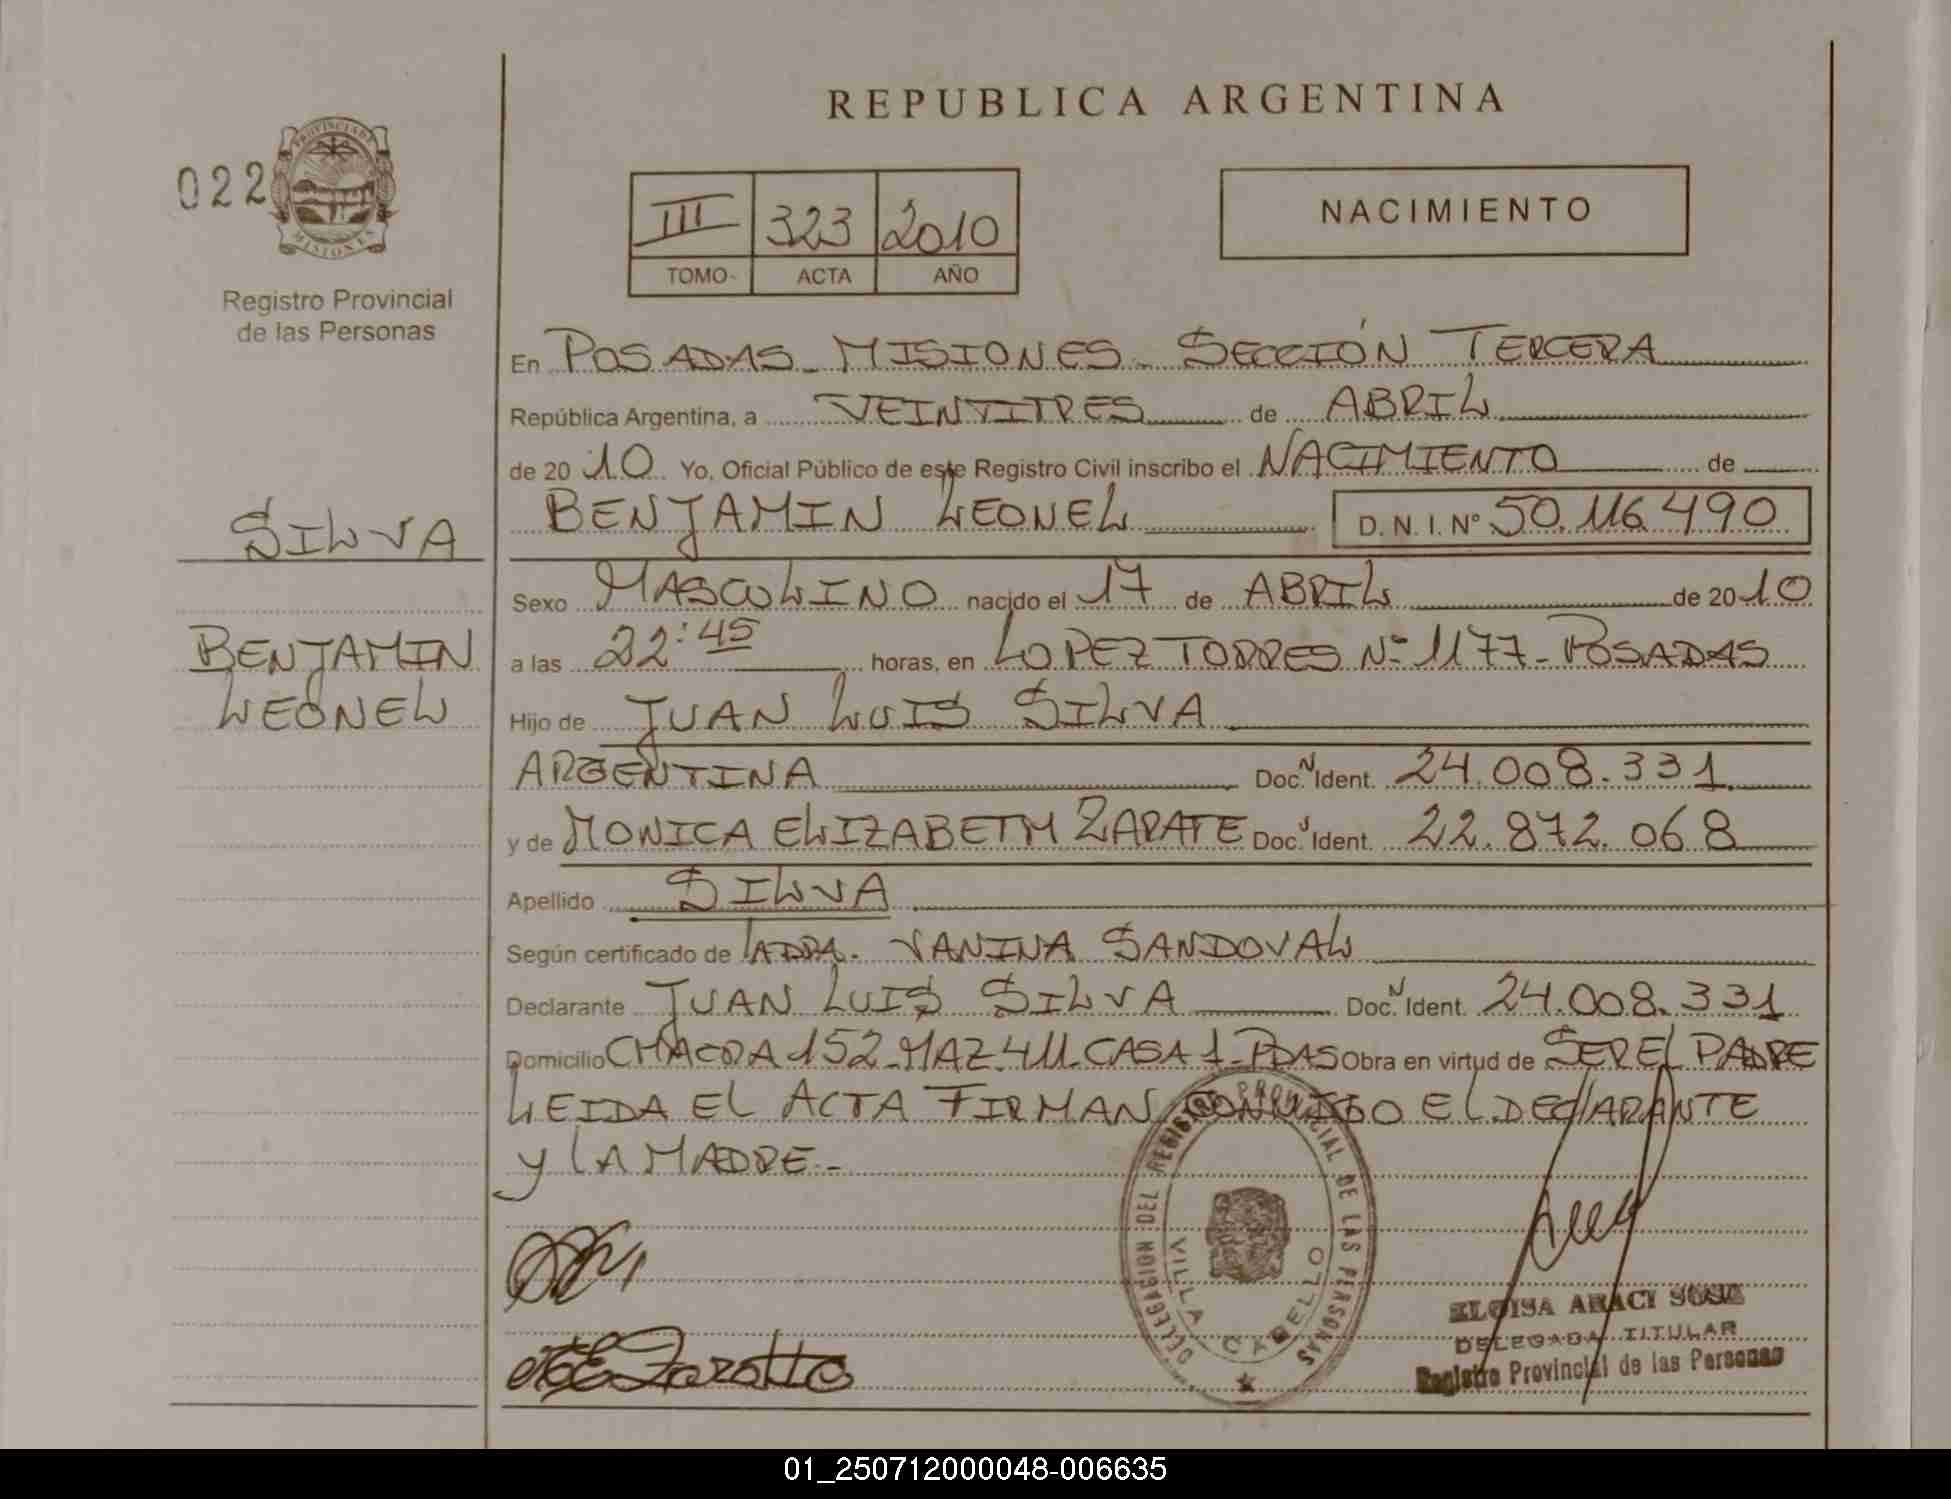 REPUBLICA ARGENTINA
022
PROVINCIA DE MISIONES
III 323 2010
TOMO ACTA AÑO
NACIMIENTO
Registro Provincial
de las Personas
En POSADAS - MISIONES - SECCIÓN TERCERA
República Argentina, a VEINTITRES de ABRIL
de 20 10 Yo, Oficial Público de este Registro Civil inscribo el NACIMIENTO de
BENJAMIN LEONEL D. N. I. Nº 50.116.490
SILVA
BENJAMIN
LEONEL
Sexo MASCULINO nacido el 17 de ABRIL de 20 10
a las 22:45 horas, en LOPEZ TORRES Nº 1177 - POSADAS
Hijo de JUAN LUIS SILVA
ARGENTINA Doc. N Ident. 24.008.331
y de MONICA ELIZABETH ZARATE Doc. Ident. 22.872.068
Apellido SILVA
Según certificado de LA DRA. VANINA SANDOVAL
Declarante JUAN LUIS SILVA Doc. N Ident. 24.008.331
Domicilio CHACRA 152 - MAZ. 411 - CASA 1 - PDAS Obra en virtud de SER EL PADRE
LEIDA EL ACTA FIRMAN CONMIGO EL DECLARANTE
y LA MADRE.-
DELEGACION DEL REGISTRO PROVINCIAL DE LAS PERSONAS
VILLA CABELLO
ELOISA ARACI SOSA
DELEGADA TITULAR
Registro Provincial de las Personas
01_250712000048-006635